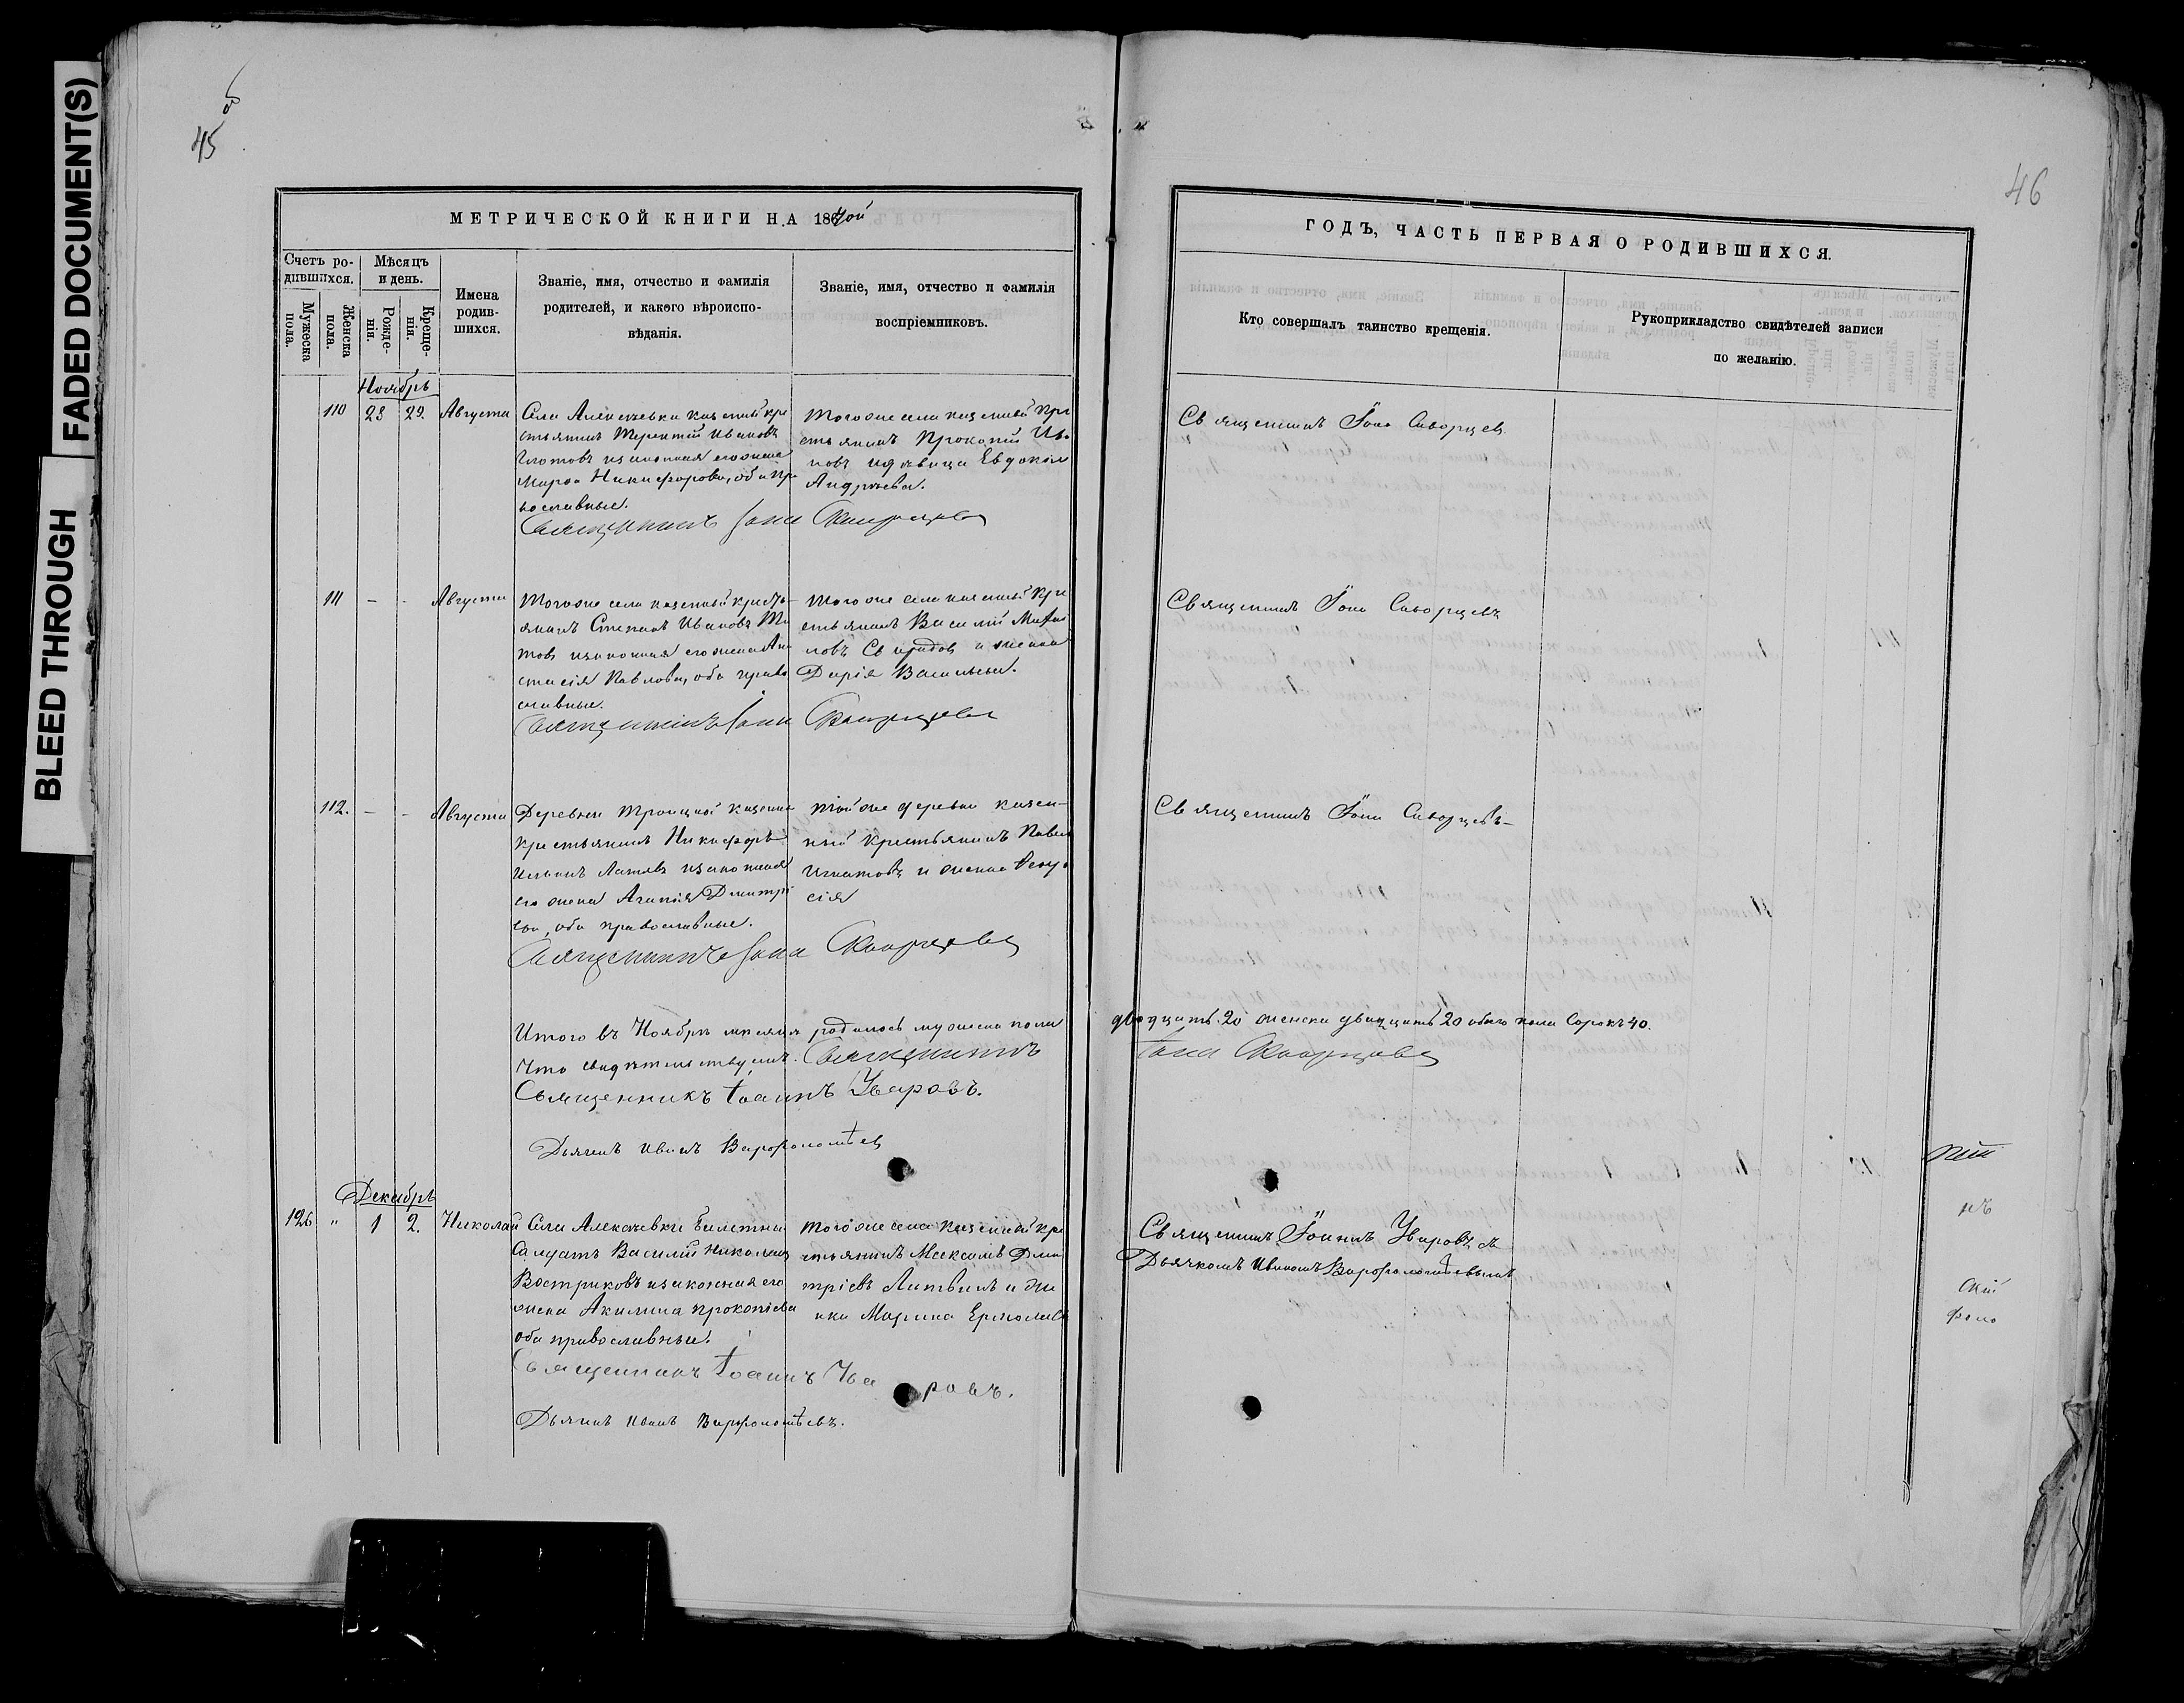 FADED DOCUMENT(S)
BLEED THROUGH
45 об
46
МЕТРИЧЕСКОЙ КНИГИ НА 1867ой
ГОДЪ, ЧАСТЬ ПЕРВАЯ О РОДИВШИХСЯ.
Счетъ ро-
дившихся.
Мужеска пола.
Женска пола.
Мѣсяцъ
и день.
Рожде-
нія.
Креще-
нія.
Имена
родив-
шихся.
Званіе, имя, отчество и фамилія
родителей, и какого вѣроиспо-
вѣданія.
Званіе, имя, отчество и фамилія
воспріемниковъ.
Кто совершалъ таинство крещенія.
Рукоприкладство свидѣтелей записи
по желанію.
Ноябрь
110 28 29. Августа
Села Алексѣевки казенный кре
стьянинъ Терентій Ивановъ
законная его жена
Марѳа Никифорова, оба пра
вославные.
Священникъ Іона Скворцовъ
Тогоже села казенный кре
стьянинъ Прокопій Ива
новъ и дѣвица Евдокія
Андреева.
Священникъ Іона Скворцовъ
111 - - Августа
Тогоже села казенный кресть-
янинъ Степанъ Ивановъ Ти
товъ и законная его жена Ана
стасія Павлова, оба право
славные.
Священникъ Іона Скворцовъ
Тогоже села казенный кре
стьянинъ Василій Михай
ловъ Свиридовъ и жена
Дарія Васильева.
Священникъ Іона Скворцовъ
112. - - Августа
Деревни Троицкой казенны
крестьянинъ Никифоръ
Ильинъ и законная
его жена Агапія Дмитрі
ева, оба православные.
Священникъ Іона Скворцовъ
Тойже деревни казен-
ный крестьянинъ Павелъ
Игнатовъ и жена
Священникъ Іона Скворцовъ-
Итого въ Ноябрѣ мѣсяцѣ родилось мужеска пола
двадцать 20 женска двадцать 20 обоего пола Сорокъ 40.
Что свидѣтельствуемъ. Священникъ
Іона Скворцовъ
Священникъ Іоаннъ Уваровъ.
Дьячекъ Иванъ Варфоломѣев
Декабрь
126 " 1 2. Николай
Села Алексѣевки билетный
Салдатъ Василій Николаевъ
Востриковъ и законная его
жена Акилина Прокопіева
оба православные.
Священникъ Іоаннъ Уваровъ.
Дьячекъ Иванъ Варфоломѣевъ.
Тогоже села казенный кре
стьянинъ Максимъ Дми
тріевъ Литвинъ и
Марина Ермолаева
Священникъ Іоаннъ Уваровъ съ
Дьячкомъ Иваномъ Варфоломѣевымъ
нъ
скій